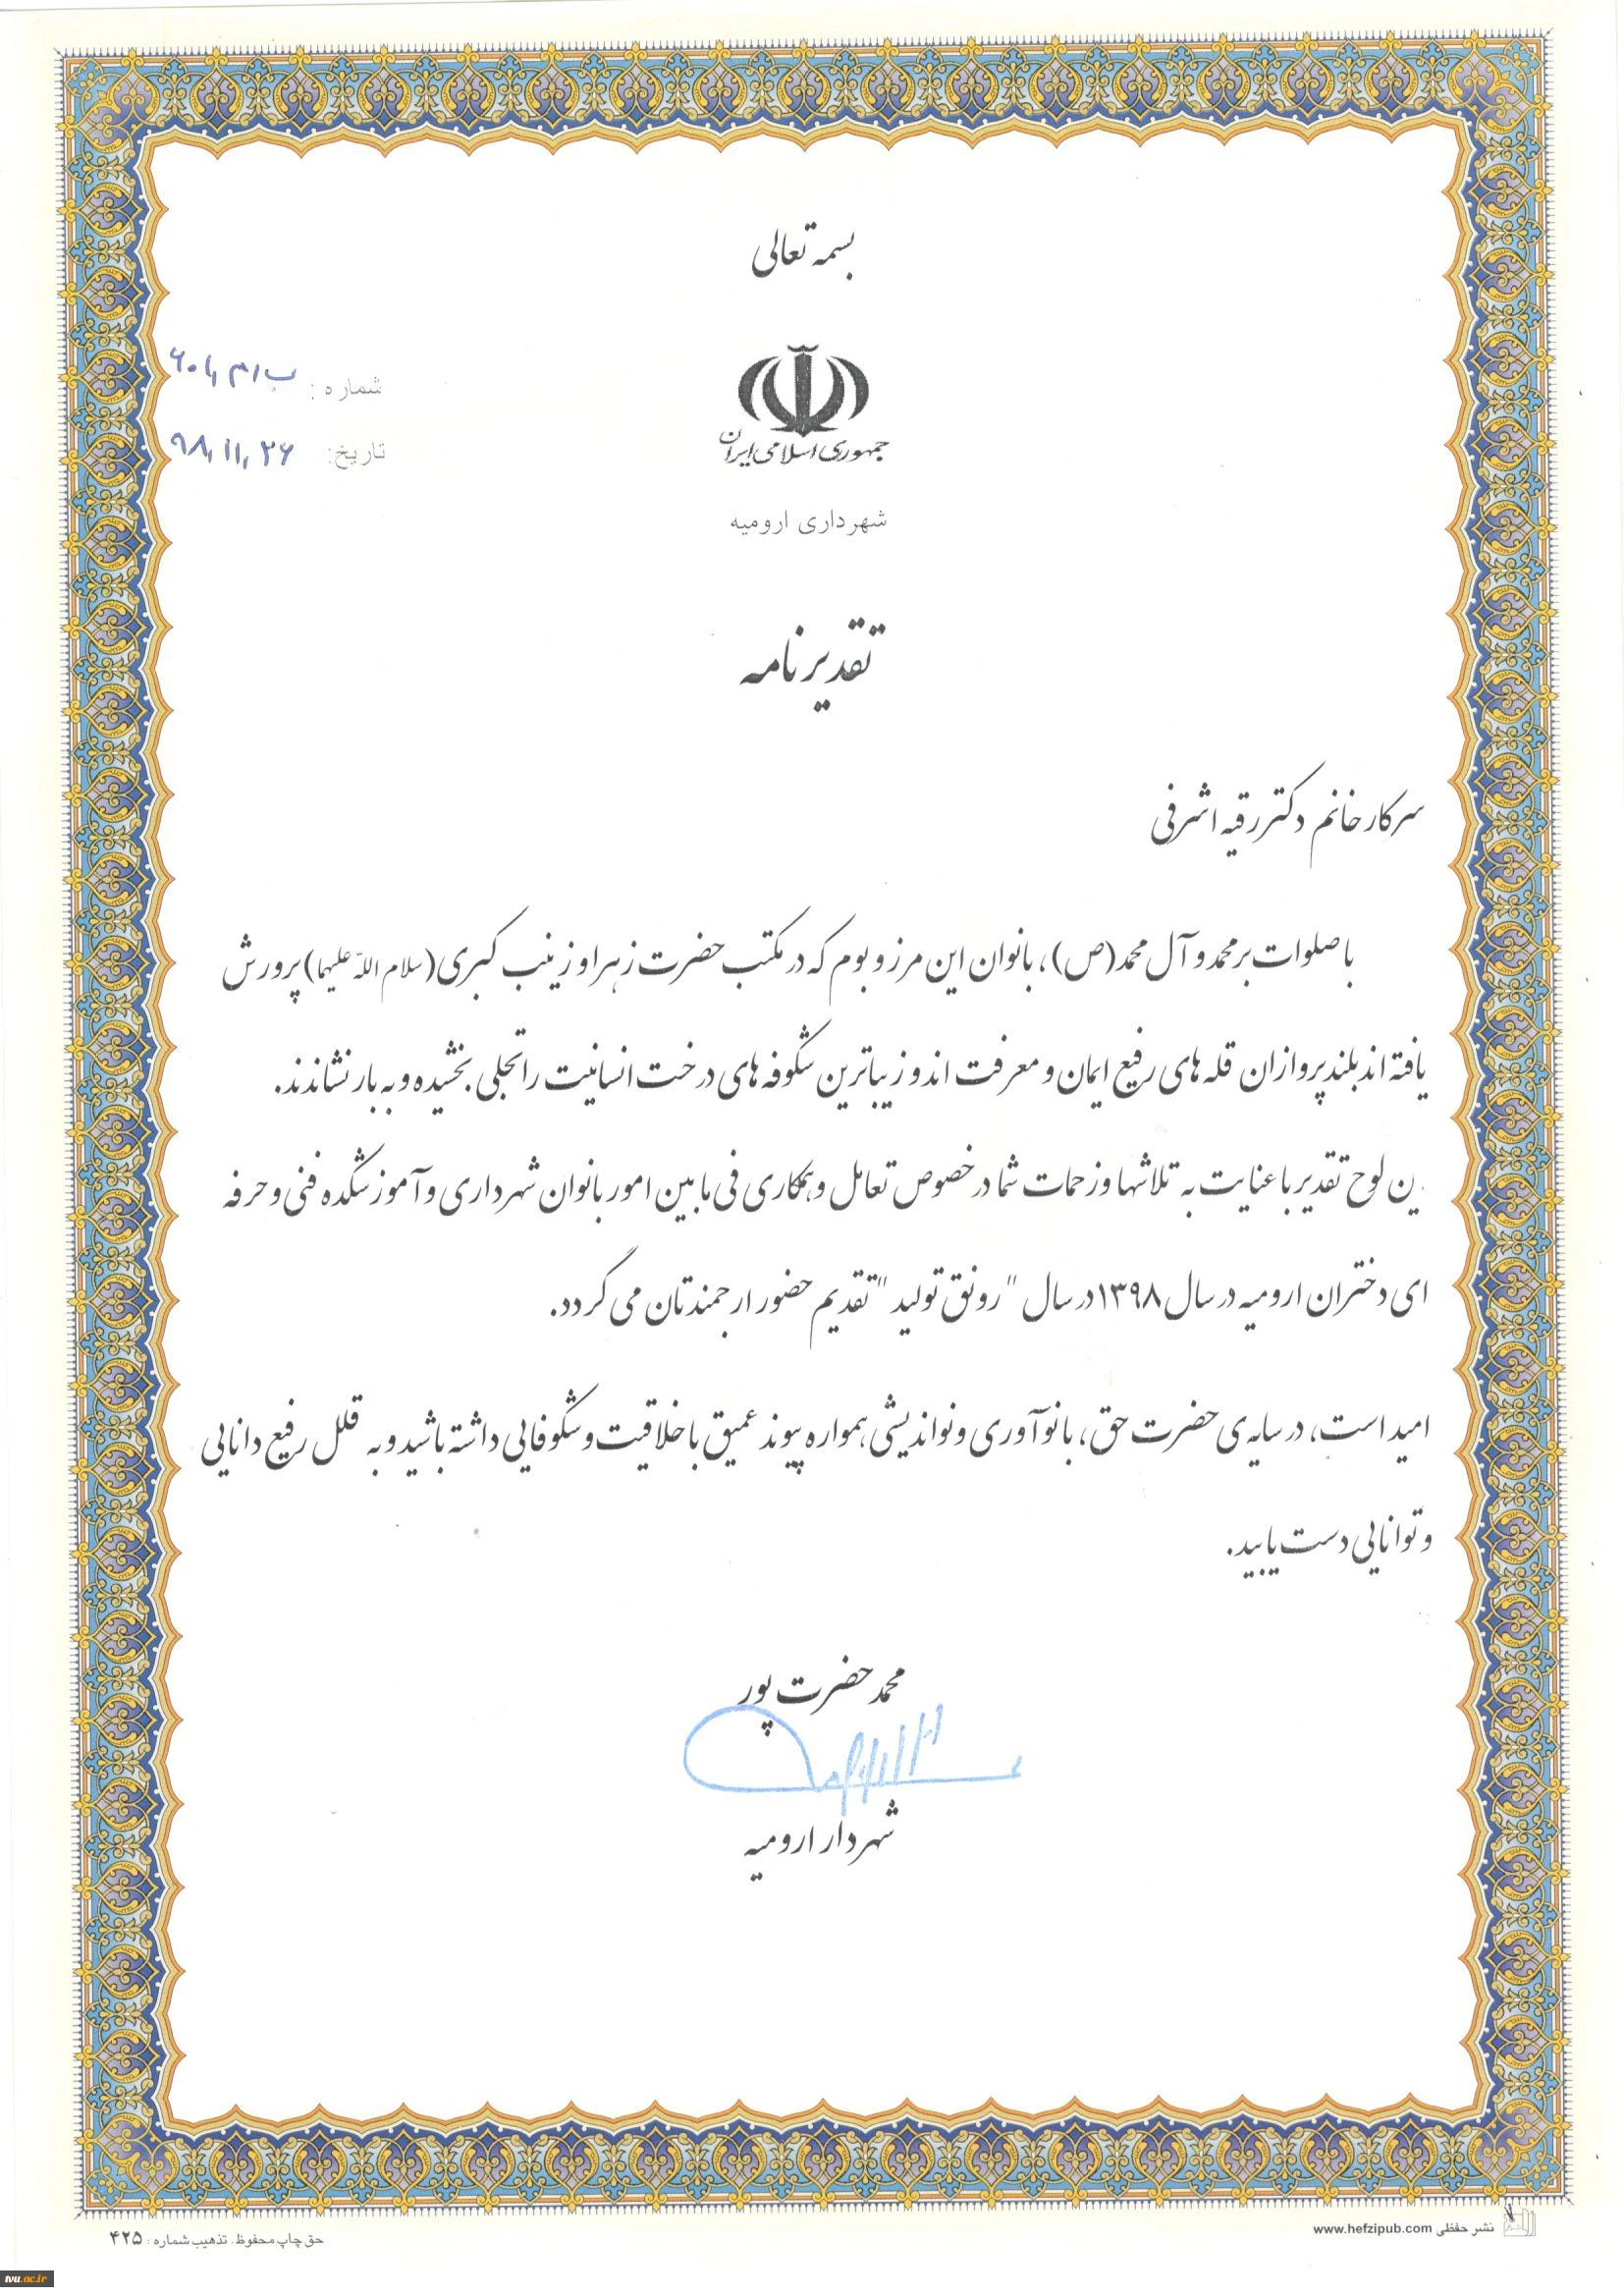 بسمه تعالی
جمهوری اسلامی ایران
شهرداری ارومیه
شماره :
تاریخ: ۹۸,۱۱,۲۶
تقدیرنامه
سرکار خانم دکتر رقیه اشرفی
با صلوات بر محمد و آل محمد(ص)، بانوان این مرز و بوم که در مکتب حضرت زهرا و زینب کبری (سلام الله علیهما) پرورش
یافته اند بلند پروازان قله های رفیع ایمان و معرفت اند و زیباترین شکوفه های درخت انسانیت را تجلی بخشیده و به بار نشاندند.
ین لوح تقدیر با عنایت به تلاشها و زحمات شما در خصوص تعامل و همکاری فی ما بین امور بانوان شهرداری و آموزشکده فنی و حرفه
ای دختران ارومیه در سال ۱۳۹۸ در سال "رونق تولید" تقدیم حضور ارجمندتان می گردد.
امید است، در سایه ی حضرت حق، با نوآوری و نواندیشی همواره پیوند عمیق با خلاقیت و شکوفایی داشته باشید و به قلل رفیع دانایی
و توانایی دست یابید.
محمد حضرت پور
شهردار ارومیه
حق چاپ محفوظ. تذهیب شماره : ۴۲۵
نشر حفظی www.hefzipub.com
tvu.ac.ir